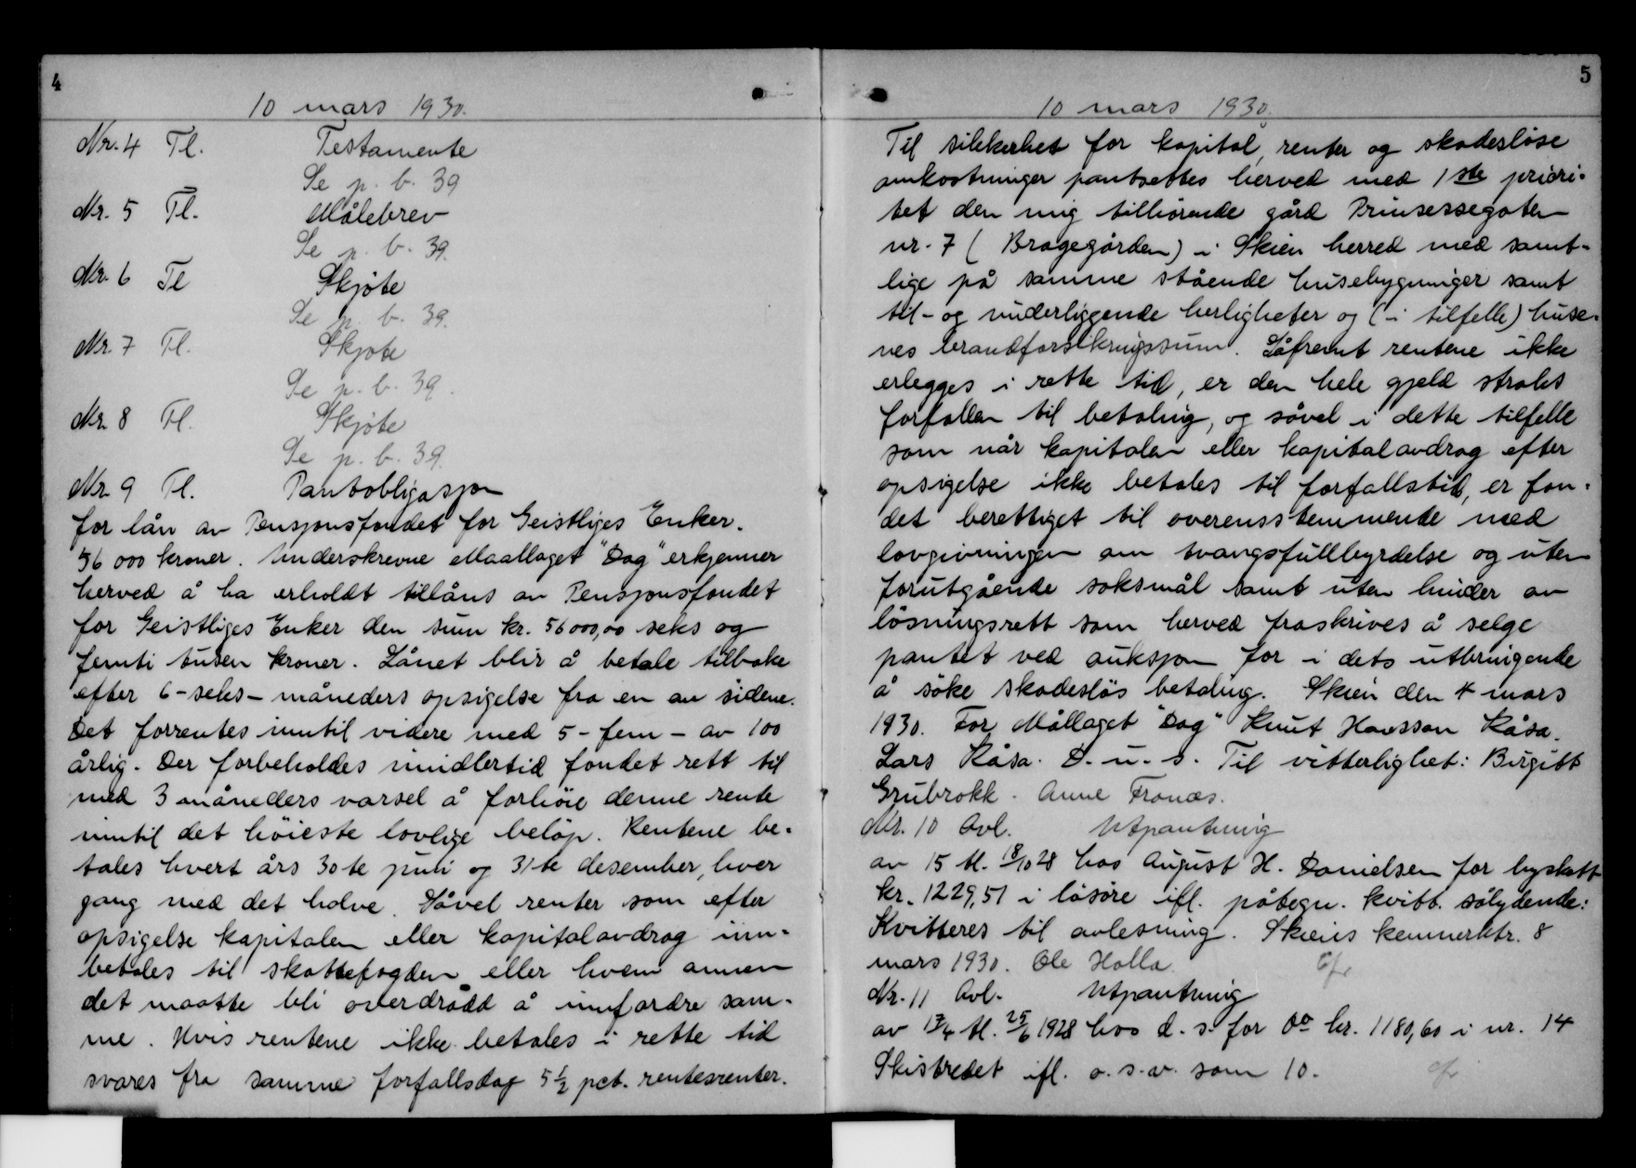 4
10 mars 1930.
Nr. 4 Tl. Testamente
Se p. b. 39
Nr. 5 Tl. Målebrev
Se p. b. 39.
Nr. 6 Tl Skjøte
Se p. b. 39.
Nr. 7 Tl. Skjøte
Se p. b. 39.
Nr. 8 Tl. Skjøte
Se p. b. 39.
Nr. 9 Tl. Pantobligasjon
for lån av Pensjonsfondet for Geistliges Enker.
56 000 kroner. Underskrevne Maallaget "Dag" erkjenner
herved å ha erholdt tillåns av Pensjonsfondet
for Geistliges Enker den sum kr. 56000,00 seks og
femti tusen kroner. Lånet blir å betale tilbake
efter 6-seks- måneders opsigelse fra en av sidene.
Det forrentes inntil videre med 5 - fem - av 100
årlig. Der forbeholdes imidlertid fondet rett til
med 3 måneders varsel å forhöie denne rente
inntil det höieste lovlige belöp. Rentene be-
tales hvert års 30te juni og 31te desember, hver
gang med det halve. Såvel renter som efter
opsigelse kapitalen eller kapitalavdrag inn-
betales til skattefogden eller hvem annen
det maatte bli overdradd å innfordre sam-
me. Hvis rentene ikke betales i rette tid
svares fra samme forfallsdag 5 1/2 pct. rentesrenter.
5
10 mars 1930.
Til sikkerhet for kapital, renter og skadeslöse
omkostninger pantsettes herved med 1ste priori-
tet den mig tilhörende gård Prinsessegaten
nr. 7 (Bragegården) i Skien herred med samt-
lige på samme stående husebygninger samt
til- og underliggende herligheter og (i tilfelle) huse-
nes brandforsikringssum. Såfremt rentene ikke
erlegges i rette tid, er den hele gjeld straks
forfallen til betaling, og såvel i dette tilfelle
som når kapitalen eller kapitalavdrag efter
opsigelse ikke betales til forfallstid, er fon-
det berettiget til overensstemmende med
lovgivningen om tvangsfullbyrdelse og uten
forutgående söksmål samt uten hinder av
lösningsrett som herved fraskrives å selge
pantet ved auksjon for i dets utbringende
å söke skadeslös betaling. Skien den 4 mars
1930. For Mållaget "Dag" Knut Hansson Råsa.
Lars Råsa. D. u. s. Til vitterlighet: Birgitt
Grubrokk. Anne Fronæs.
Nr. 10 Avl. Utpantning
av 15 tl. 18/10 28 hos August H. Danielsen for byskatt
kr. 1229,51 i lösöre ifl. påtegn. kvitt. sålydende:
Kvitteres til avlesning. Skiens kemnerktr. 8
mars 1930. Ole Holla.
Nr. 11 Avl. Utpantning
av 13/4 tl. 25/6 1928 hos d. s. for do kr. 1180,60 i nr. 14
Skistredet ifl. o. s. v. som 10.